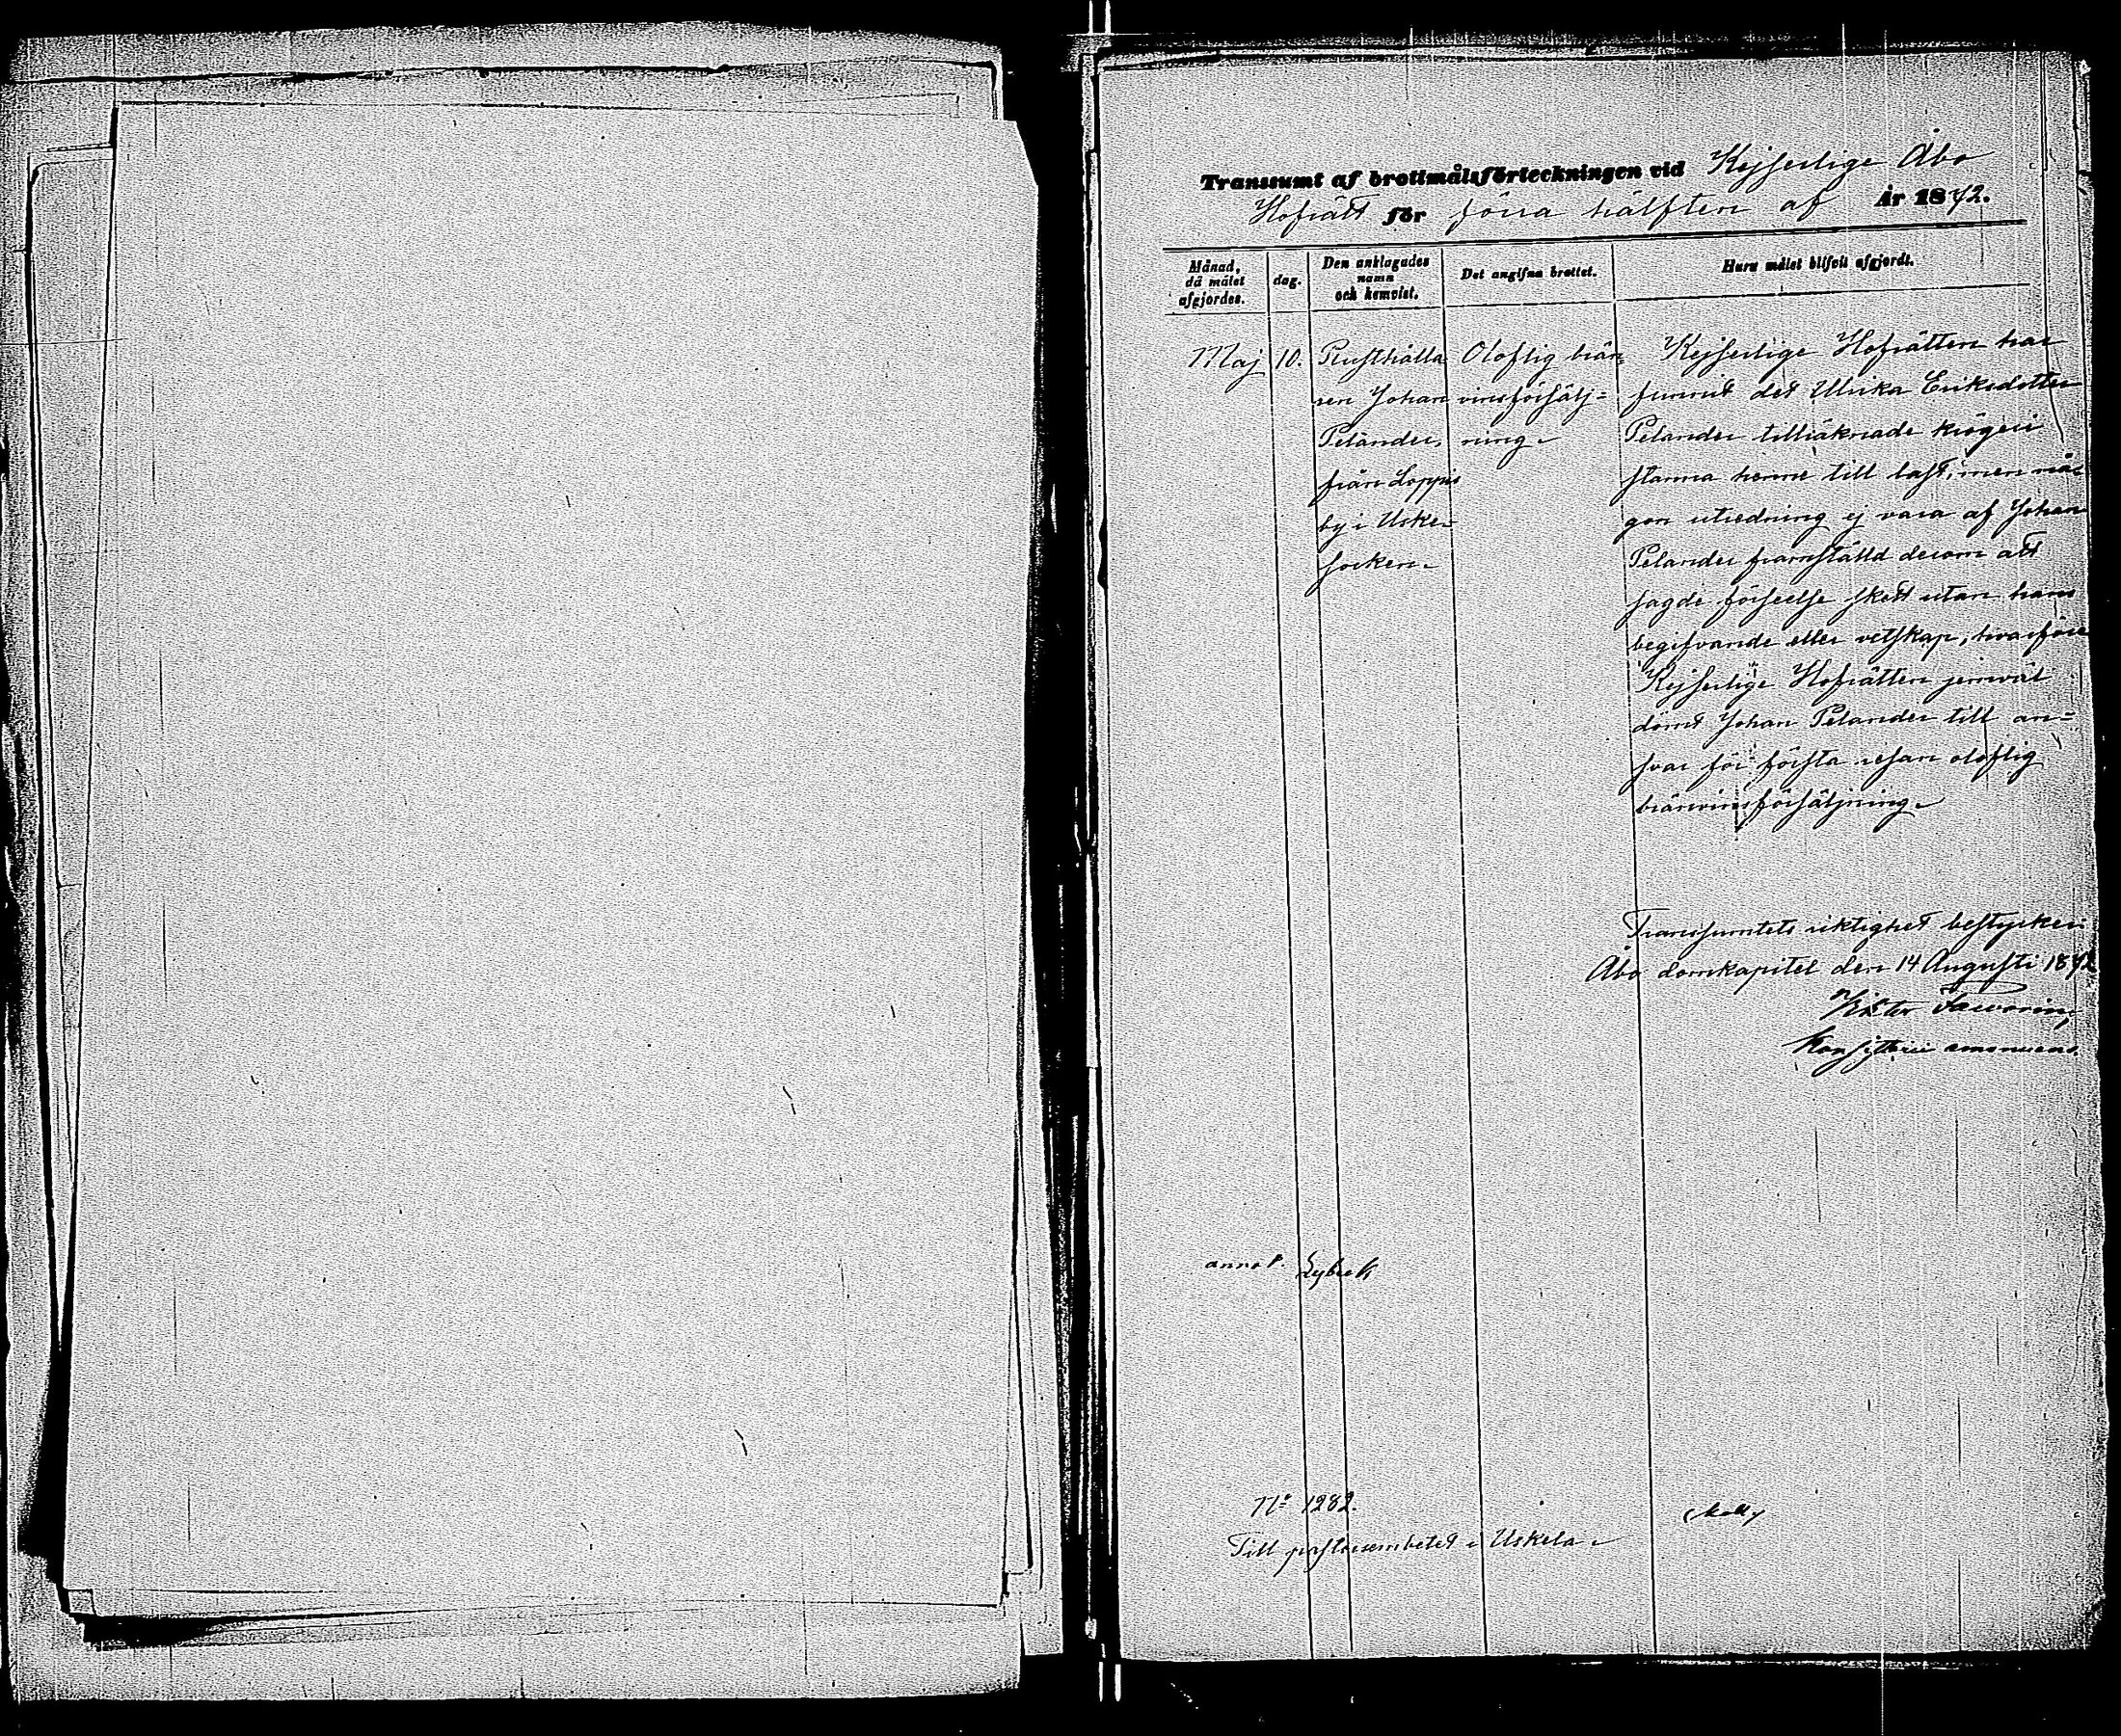 Transsumt af brottmålsförteckningen vid Kejserlige Åbo
Hofrätt för förra hälften af År 1872.
Månad, då målet afgjordes.
dag.
Den anklagades namn och hemvist.
Det angifna brottet.
Huru målet blifvit afgjordt.
Maj
10.
Rusthålla
ren Johan
Pelander,
från Loppis
by i Uske-
socken.
Oloflig brän
vinsförsälj=
ning.
Kejserlige Hofrätten har
funnit det Ulrika Eriksdotter
Pelander tillräknade krögeri
stanna henne till last, men nå-
gon utredning ej vara af Johan
Pelander framställd derom att
sagde förseelse skett utan hans
begifvande eller vetskap, hvarföre
Kejserlige Hofrätten jemväl
dömt Johan Pelander till an=
svar för första resan oloflig
bränvinsförsäljning.
Transsumtets riktighet bestyrker:
Åbo domkapitel den 14 Augusti 1872
Viktor
Konsistorii amanuens.
annot. Lybeck
No 1282.
Till pastorsembetet i Uskela.